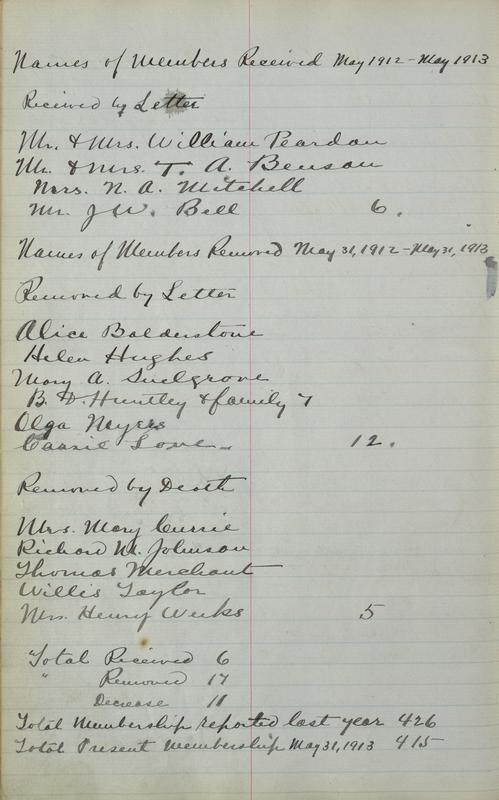 Names of Members Received May 1912 - May 1913
Received by Letter
Mr. & Mrs. William Peardon
Mr. & Mrs. T. A. Benson
Mrs. N. A. Mitchell
Mr. J W. Bell 6.
Names of Members Removed May 31, 1912 - May 31, 1913
Removed by Letter
Alice Balderstone
Helen Hughes
Mary A. Snelgrove
B. D. Huntley & family 7
Olga Meyers
Cassie Love 12.
Removed by Death
Mrs. Mary Currie
Richard M. Johnson
Thomas Merchant
Willis Taylor
Mrs. Henry Weeks 5
Total Received 6
" Removed 17
Decrease 11
Total Membership reported last year 426
Total Present Membership May 31, 1913 415